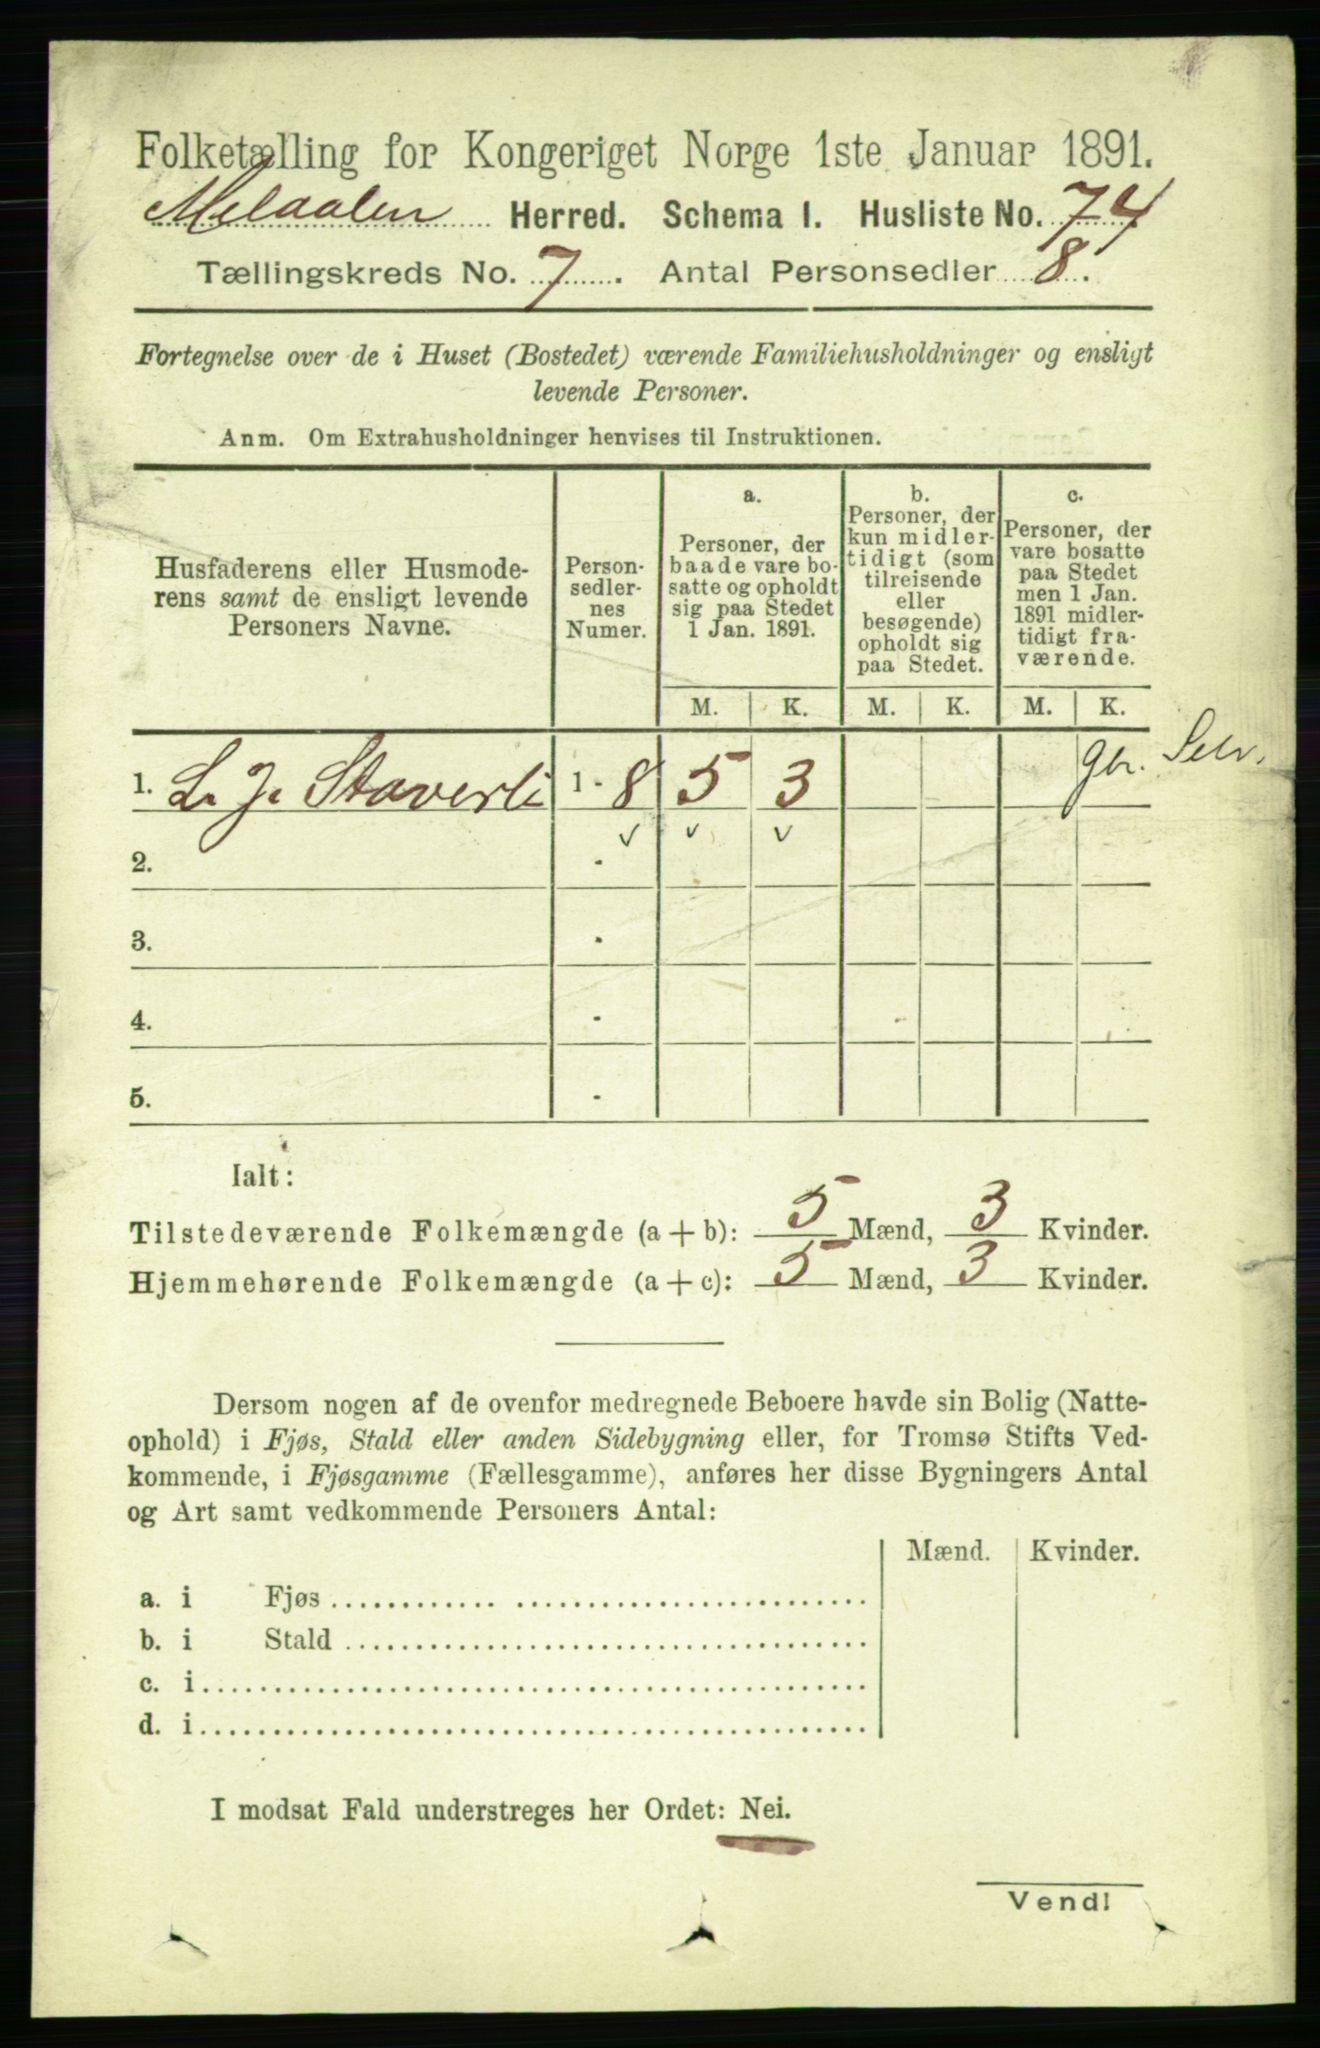 Folketælling for Kongeriget Norge 1ste Januar 1891.
Melaalen Herred. Schema I. Husliste No. 74
Tællingskreds No. 7. Antal Personsedler 8.
Fortegnelse over de i Huset (Bostedet) værende Familiehusholdninger og ensligt
levende Personer.
Anm. Om Extrahusholdninger henvises til Instruktionen.
Husfaderens eller Husmode-
rens samt de ensligt levende
Personers Navne.
Person-
sedler-
nes
Numer.
a.
Personer, der
baade vare bo-
satte og opholdt
sig paa Stedet
1 Jan. 1891.
b.
Personer, der
kun midler-
tidigt (som
tilreisende
eller
besøgende)
opholdt sig
paa Stedet.
c.
Personer, der
vare bosatte
paa Stedet
men 1 Jan.
1891 midler-
tidigt fra-
værende.
M. K. M. K. M. K.
1. L. J. Staverli 1 - 8 5 3 gbr. Selv.
2. -
3. -
4. -
5. -
Ialt:
Tilstedeværende Folkemængde (a + b): 5 Mænd, 3 Kvinder.
Hjemmehørende Folkemængde (a + c): 5 Mænd, 3 Kvinder.
Dersom nogen af de ovenfor medregnede Beboere havde sin Bolig (Natte-
ophold) i Fjøs, Stald eller anden Sidebygning eller, for Tromsø Stifts Ved-
kommende, i Fjøsgamme (Fællesgamme), anføres her disse Bygningers Antal
og Art samt vedkommende Personers Antal:
Mænd. Kvinder.
a. i Fjøs
b. i Stald
c. i
d. i
I modsat Fald understreges her Ordet: Nei.
Vend!